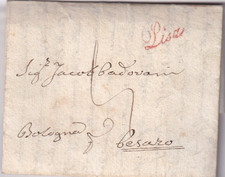 Pisa
Sig.r Jacob Padovani
Bologna p
Pesaro